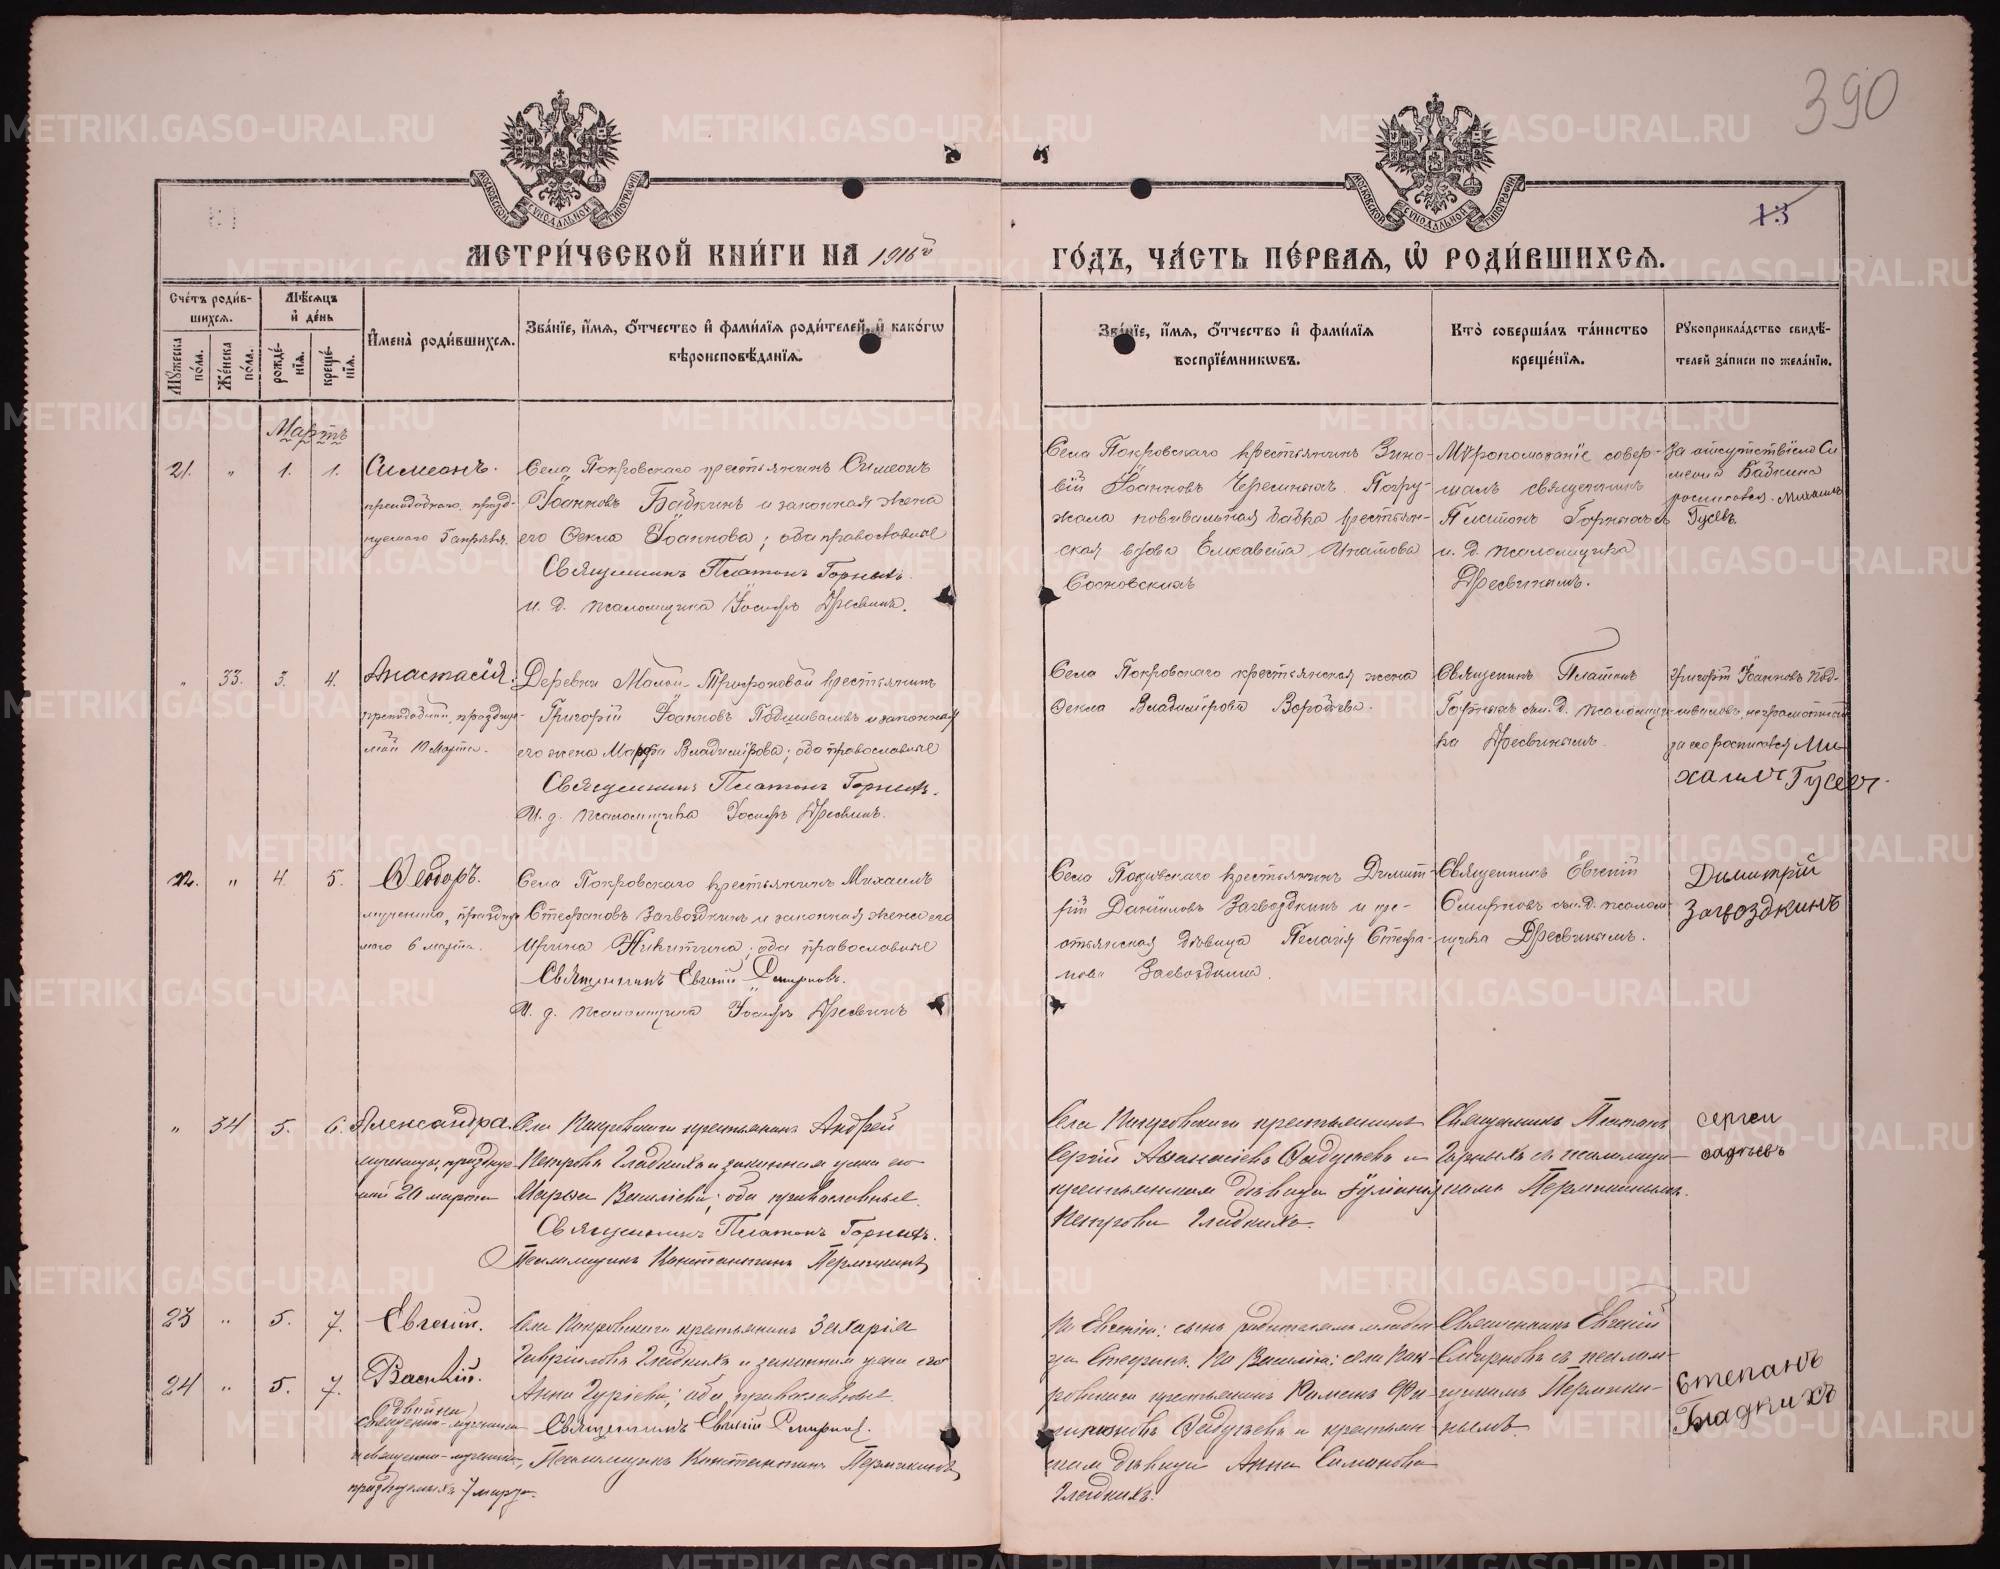 390
13
МОСКОВСКОЙ СѴНОДАЛЬНОЙ ТИПОГРАФІИ
МОСКОВСКОЙ СѴНОДАЛЬНОЙ ТИПОГРАФІИ
МЕТРИ́ЧЕСКОЙ КНИ́ГИ НА 1916й
ГО́ДЪ, ЧА́СТЬ ПЕ́РВАѦ, Ѡ҆ РОДИ́ВШИХСѦ.
Сче́тъ роди́в-
шихсѧ.
Мѣ́сѧцъ
и҆ де́нь
Мꙋ́жеска по́ла.
Же́нска по́ла.
рожде́-
нїѧ.
креще́-
нїѧ.
И҆мена̀ роди́вшихсѧ.
Зва́нїе, и҆́мѧ, ѻ҆́тчество и҆ фами́лїѧ роди́телей, и҆ како́гѡ
вѣроисповѣ́данїѧ.
Зва́нїе, и҆́мѧ, ѻ҆́тчество и҆ фами́лїѧ
воспрїе́мникѡвъ.
Кто̀ соверша́лъ та́инство
креще́нїѧ.
Рꙋкоприкла́дство свидѣ́-
телей за́писи по жела́нїю.
Мартъ
21. " 1. 1. Симеонъ.
преподобнаго, празд-
нуемаго
Села Покровскаго крестьянинъ Симеонъ
Іоанновъ Бабкинъ и законная жена
его Ѳекла Іоаннова; оба православные
Священникъ Платонъ Горныхъ.
И. д. псаломщика Іосифъ Дресвинъ.
Села Покровскаго крестьянинъ Зино-
вій Іоанновъ Черемныхъ. Погру-
жала повивальная бабка крестьян-
ская вдова Елизавета Игнатова
Сосновскихъ
Мѵропомазаніе совер-
шалъ священникъ
Платонъ Горныхъ съ
и. д. псаломщика
Дресвинымъ.
За отсутствіемъ Си-
меона Бабкина
росписался Михаилъ
Гусевъ
" 33. 3. 4. Анастасія.
преподобной, празднуе-
мой 10 марта.
Деревни Малой-Трифоновой крестьянинъ
Григорій Іоанновъ Подшиваловъ и законная
его жена Марфа Владимірова; оба православные
Священникъ Платонъ Горныхъ.
И. д. псаломщика Іосифъ Дресвинъ.
Села Покровскаго крестьянская жена
Ѳекла Владимірова Воробьева.
Священникъ Платонъ
Горныхъ съ и. д. псаломщи-
ка Дресвинымъ.
Григорій Іоанновъ Под-
шиваловъ, неграмотный
за его росписался Ми-
хаилъ Гусевъ.
22. " 4. 5. Ѳеодоръ.
мученика, празднуе-
маго 6 марта.
Села Покровскаго крестьянинъ Михаилъ
Стефановъ Загвоздкинъ и законная жена его
Ирина Никитина; оба православные
Священникъ Евгеній Смирновъ.
И. д. псаломщика Іосифъ Дресвинъ
Села Покровскаго крестьянинъ Димит-
рій Даніиловъ Загвоздкинъ и кре-
стьянская дѣвица Пелагія Стефа-
нова Загвоздкина.
Священникъ Евгеній
Смирновъ съ и. д. псалом-
щика Дресвинымъ.
Димитрій
Загвоздкинъ
" 34 5. 6. Александра.
мученицы, празднуе-
мой 20 марта
Села Покровскаго крестьянинъ Андрей
Петровъ Гладкихъ и законная жена его
Марѳа Василіева; оба православные.
Священникъ Платонъ Горныхъ.
Псаломщикъ Константинъ Пермякинъ
Села Покровскаго крестьянинъ
Сергій Аѳанасіевъ Ѳадѣевъ и
крестьянская дѣвица Іуліанія
Петрова Гладкихъ.
Священникъ Платонъ
Горныхъ съ псаломщи-
комъ Пермякинымъ.
Сергей
Фадѣевъ
23 " 5. 7. Евгеній.
24 " 5. 7. Василій.
двойни
священно-мученика
и священно-мученика,
празднуемыхъ 7 марта.
Села Покровскаго крестьянинъ Захарія
Гавріиловъ Гладкихъ и законная жена его
Анна Гуріева; оба православные.
Священникъ Евгеній Смирновъ.
Псаломщикъ Константинъ Пермякинъ
По Евгенію: сынъ родителей
Стефанъ. По Василію: села Пок-
ровскаго крестьянинъ
Ѳадѣевъ и крестьян-
ская дѣвица Анна Симонова
Гладкихъ.
Священникъ Евгеній
Смирновъ съ псалом-
щикомъ Пермяки-
нымъ.
Степанъ
Гладкихъ
METRIKI.GASO-URAL.RU